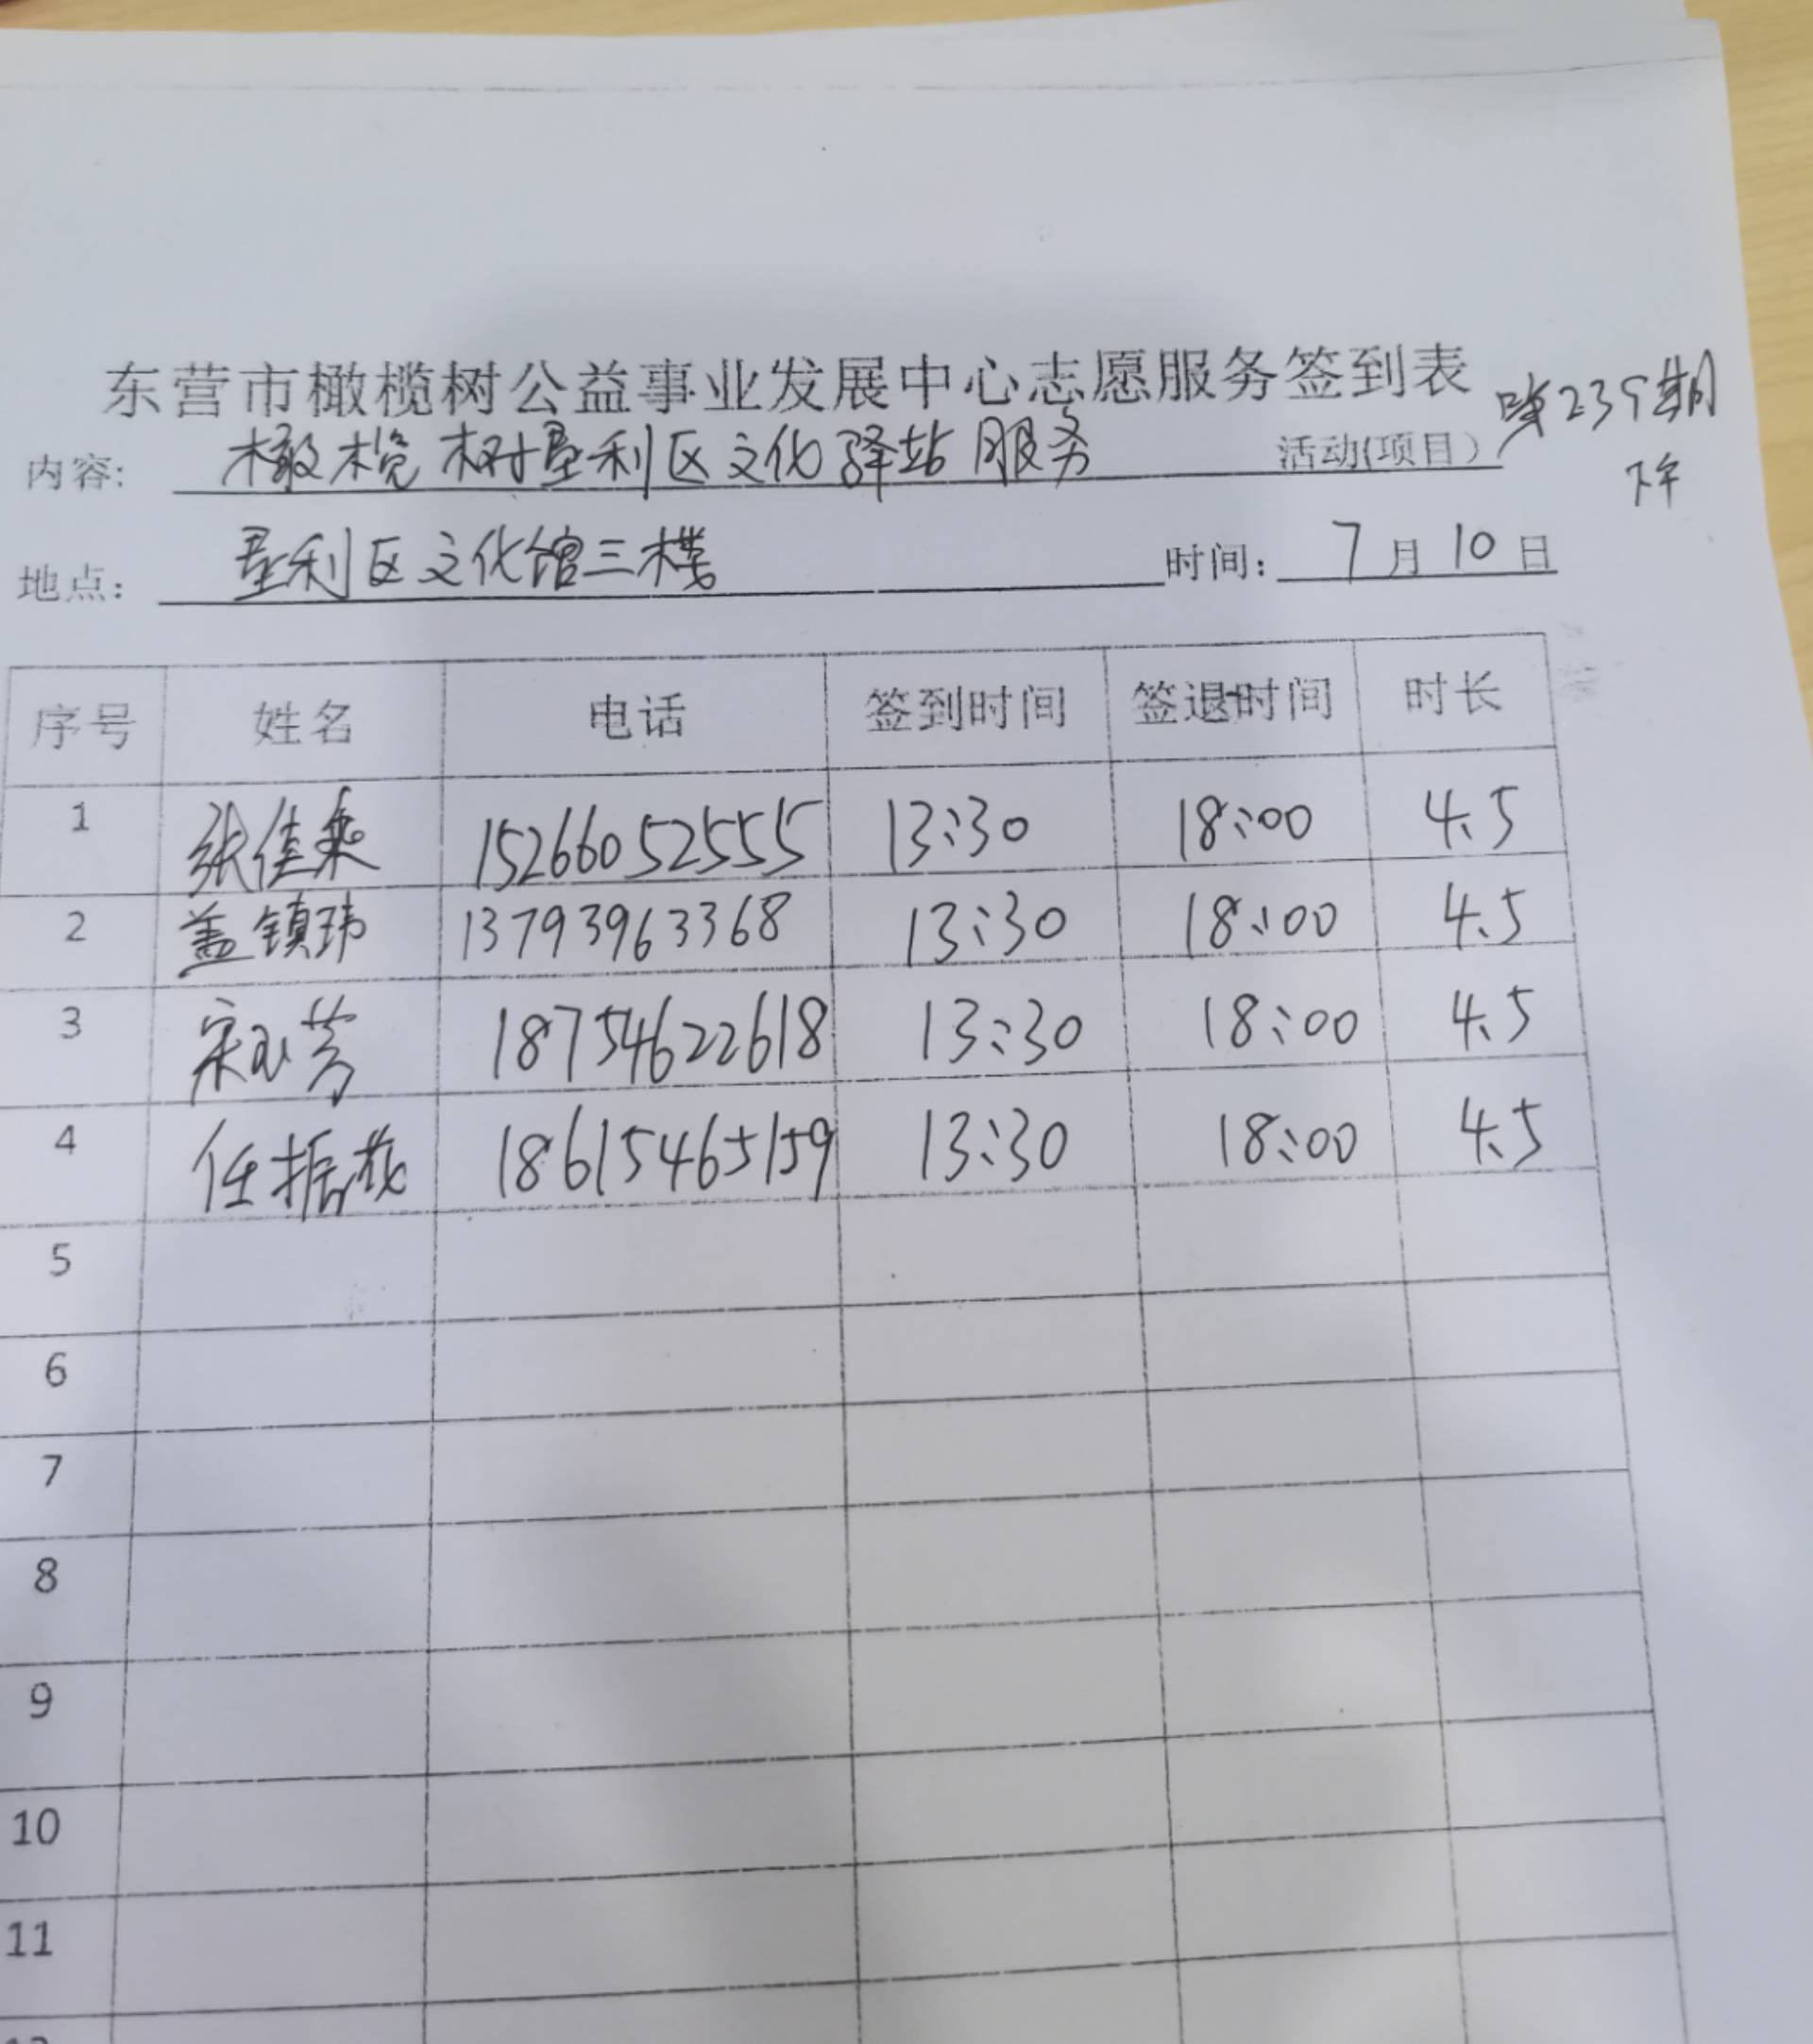 东营市橄榄树公益事业发展中心志愿服务签到表
第239期
内容: 橄榄树垦利区文化驿站服务 活动(项目)
下午
地点: 垦利区文化馆三楼 时间: 7月10日
序号 姓名 电话 签到时间 签退时间 时长
1 张佳乘 15266052555 13:30 18:00 4.5
2 盖镇玮 13793963368 13:30 18:00 4.5
3 宋玉芳 18754622618 13:30 18:00 4.5
4 任振花 18615465159 13:30 18:00 4.5
5
6
7
8
9
10
11